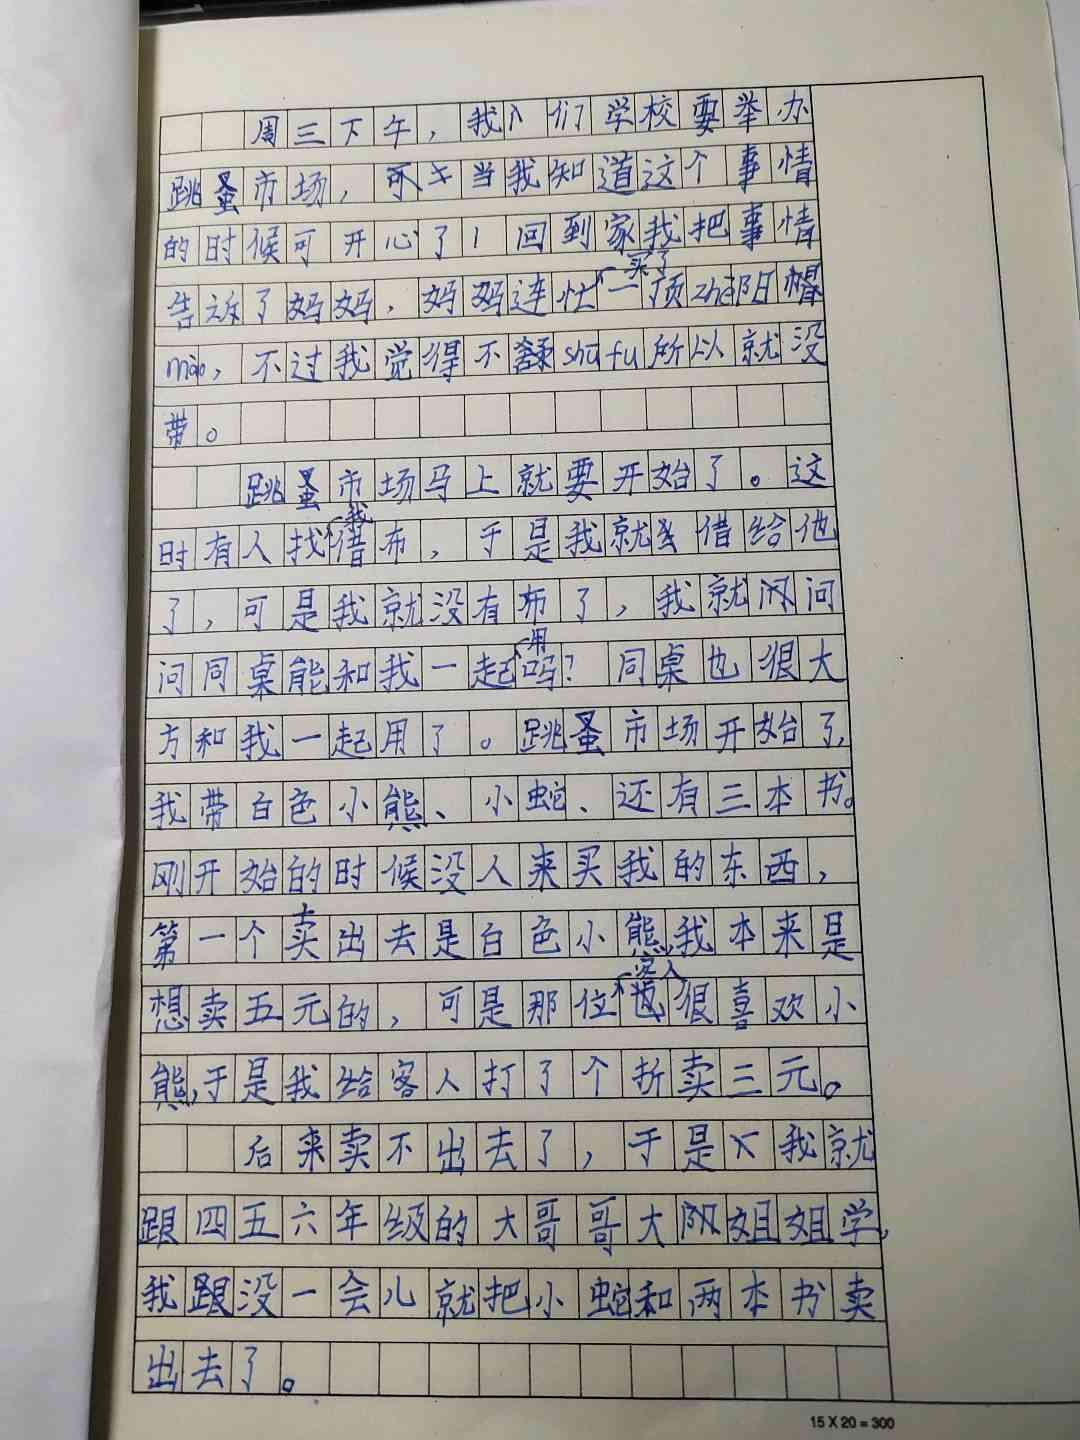 周三下午，我们学校要举办
跳蚤市场，当我知道这个事情
的时候可开心了！回到家我把事情
告诉了妈妈，妈妈连忙买了一顶zhē阳帽
mào，不过我觉得不shū fu所以就没
带。
跳蚤市场马上就要开始了。这
时有人找我借布，于是我就借给他
了，可是我就没有布了，我就问
问同桌能和我一起用吗？同桌也很大
方和我一起用了。跳蚤市场开始了，
我带白色小熊、小蛇、还有三本书。
刚开始的时候没人来买我的东西，
第一个卖出去是白色小熊，我本来是
想卖五元的，可是那位客人很喜欢小
熊，于是我给客人打了个折卖三元。
后来卖不出去了，于是我就
跟四五六年级的大哥哥大姐姐学，
我跟没一会儿就把小蛇和两本书卖
出去了。
15 X 20 = 300